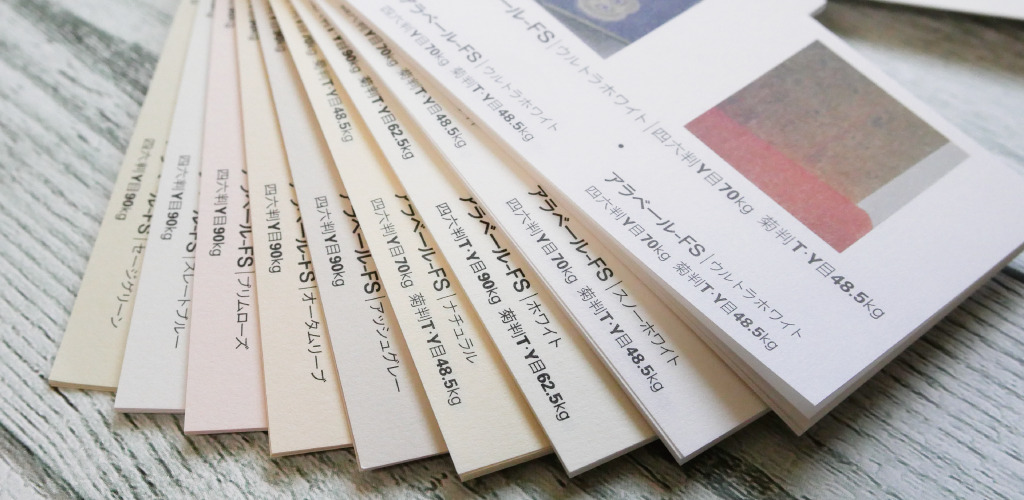 四六判Y目90kg
ル-FS|セージグリーン
四六判Y目90kg
ール-FS|スレートブルー
四六判Y目90kg
ベール-FS|プリムローズ
四六判Y目90kg
アラベール-FS|オータムリーブ
四六判Y目90kg
アラベール-FS|アッシュグレー
四六判Y目90kg
アラベール-FS|ナチュラル
四六判Y目70kg 菊判T・Y目48.5kg
アラベール-FS|ホワイト
四六判T・Y目90kg 菊判T・Y目62.5kg
アラベール-FS|スノーホワイト
四六判Y目70kg 菊判T・Y目48.5kg
アラベール-FS|ウルトラホワイト
四六判Y目70kg 菊判T・Y目48.5kg
ラベール-FS|ウルトラホワイト|四六判Y目70kg 菊判T・Y目48.5kg
アラベール-FS|ウルトラホワイト
四六判Y目70kg 菊判T・Y目48.5kg